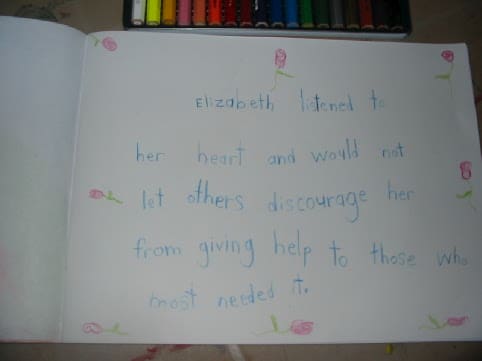 Elizabeth listened to
her heart and would not
let others discourage her
from giving help to those who
most needed it.